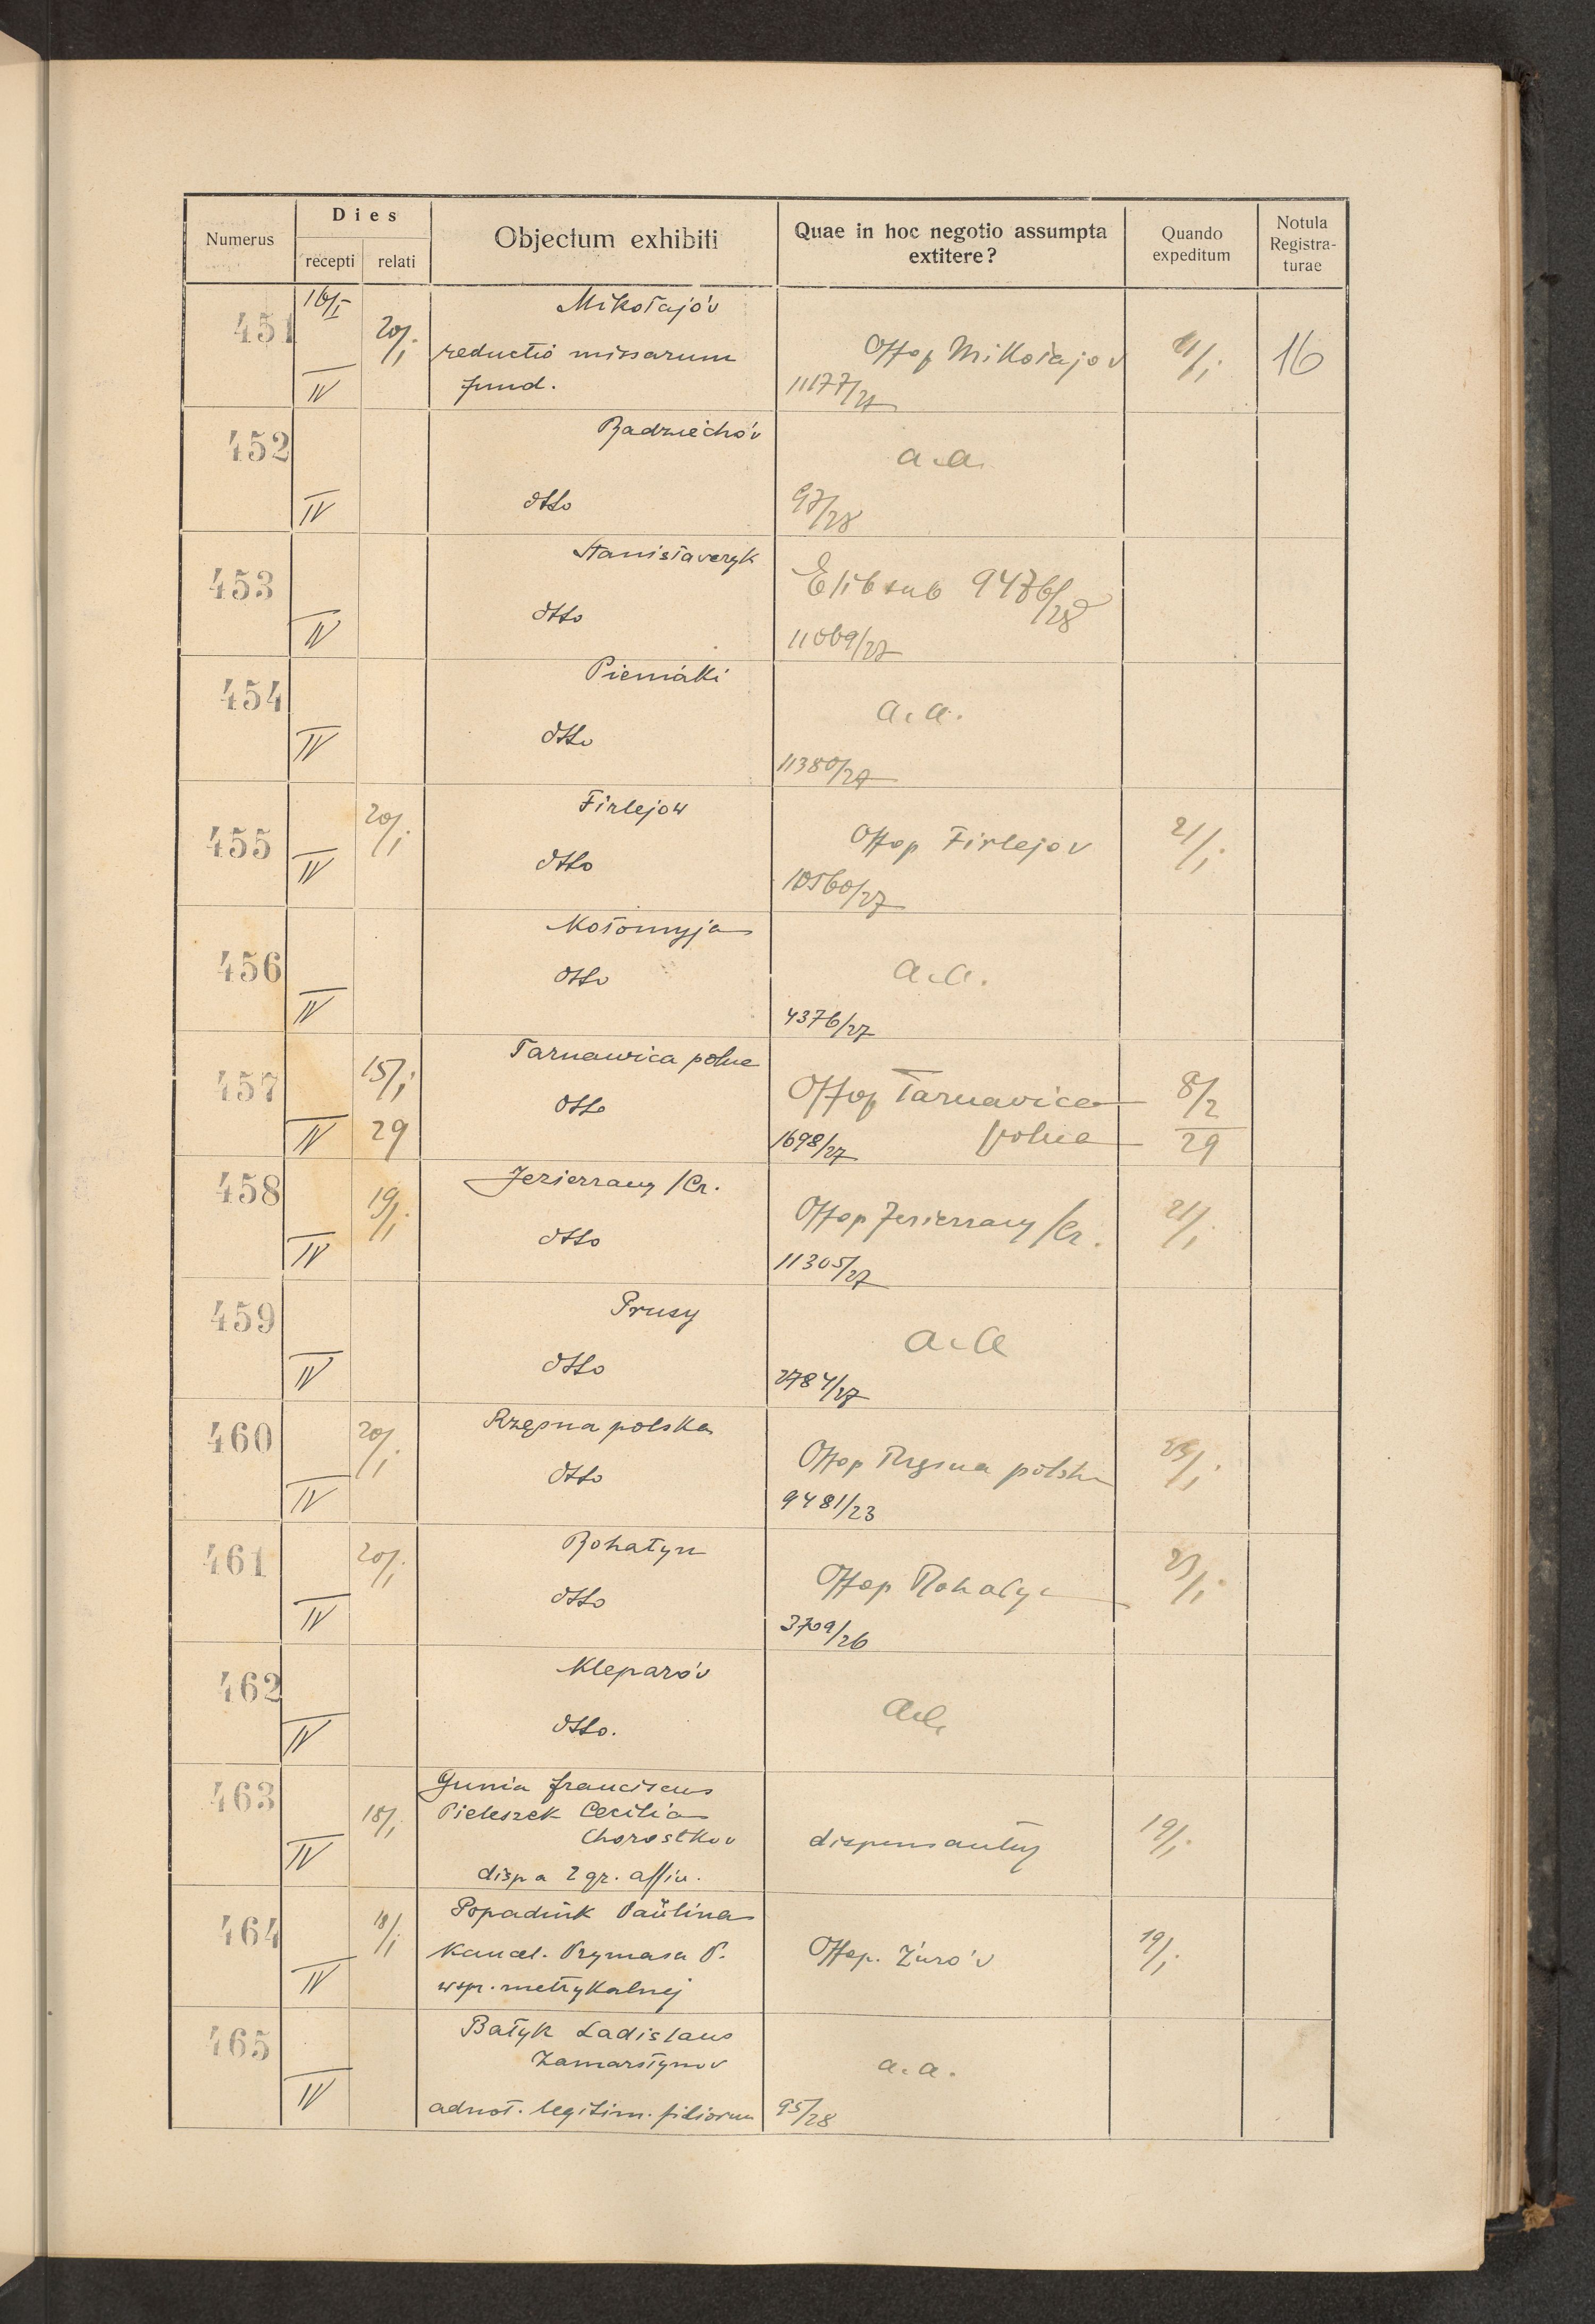 Numerus
Dies
recepti relati
Objectum exhibiti
Quae in hoc negotio assumpta
extitere?
Quando
expeditum
Notula
Registra-
turae
451 16/I 20/I Mikołajów
reductio missarum Offop Mikołajov 16
IV fund. 11177/27
452 Radziechów
a.a.
IV dtto 97/28
453 Stanisławczyk
sub 9476/28
IV dtto 11069/27
454 Pieniáki
a.a.
IV dtto 11380/27
455 20/I Firlejow
Offop Firlejov 21/I
IV dtto 10560/27
456 Kołomyja
dtto a.a.
IV 4376/27
457 15/I Tarnawica polne
dtto Offop Tarnavica 8/2
IV 29 1698/27 polne 29
458 19/I Jezierzany /Cr.
Offop Jezierzany /Cr. 21/I
IV dtto 11305/27
459 Prusy
a.a
IV dtto 2784/27
460 20/I Rzęsna polska
dtto Offop Rzęsna polska 23/I
IV 9481/23
461 20/I Rohatyn
dtto Offop Rohatyn 23/I
IV 3709/26
462 Kleparów
a.a.
IV dtto.
463 Gunia Franciscus
18/I Pieleszek Cecilia
IV Chorostkov dispensantur 19/I
disp a 2 gr. affin.
464 18/I Popadiuk Paŭlina
Kancel. Prymasa P. Offop. Żuróv 19/I
IV wspr. metrykalnej
465 Bałyk Ladislaus
Zamarstynov a.a.
IV adnot. legitim. filiorum 95/28